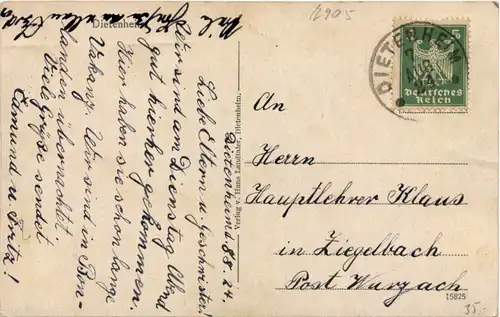 Dietenheim 8.8.24.
Liebe Eltern u. Geschwister!
Wir sind am Dienstag Abend
gut hierher gekommen.
Hier haben sie schon lange
Vakanz. Wir sind in Bin-
landen übernachtet.
Viele Grüße sendet
Edmund u. Fritz!
Viele Grüße
Dietenheim
Verlag v. Hans Landthaler, Dietenheim.
DIETENHEIM
AUG
5
Deutsches
Reich
An
Herrn
Hauptlehrer Klaus
in Ziegelbach
Post Wurzach
15825
35.-